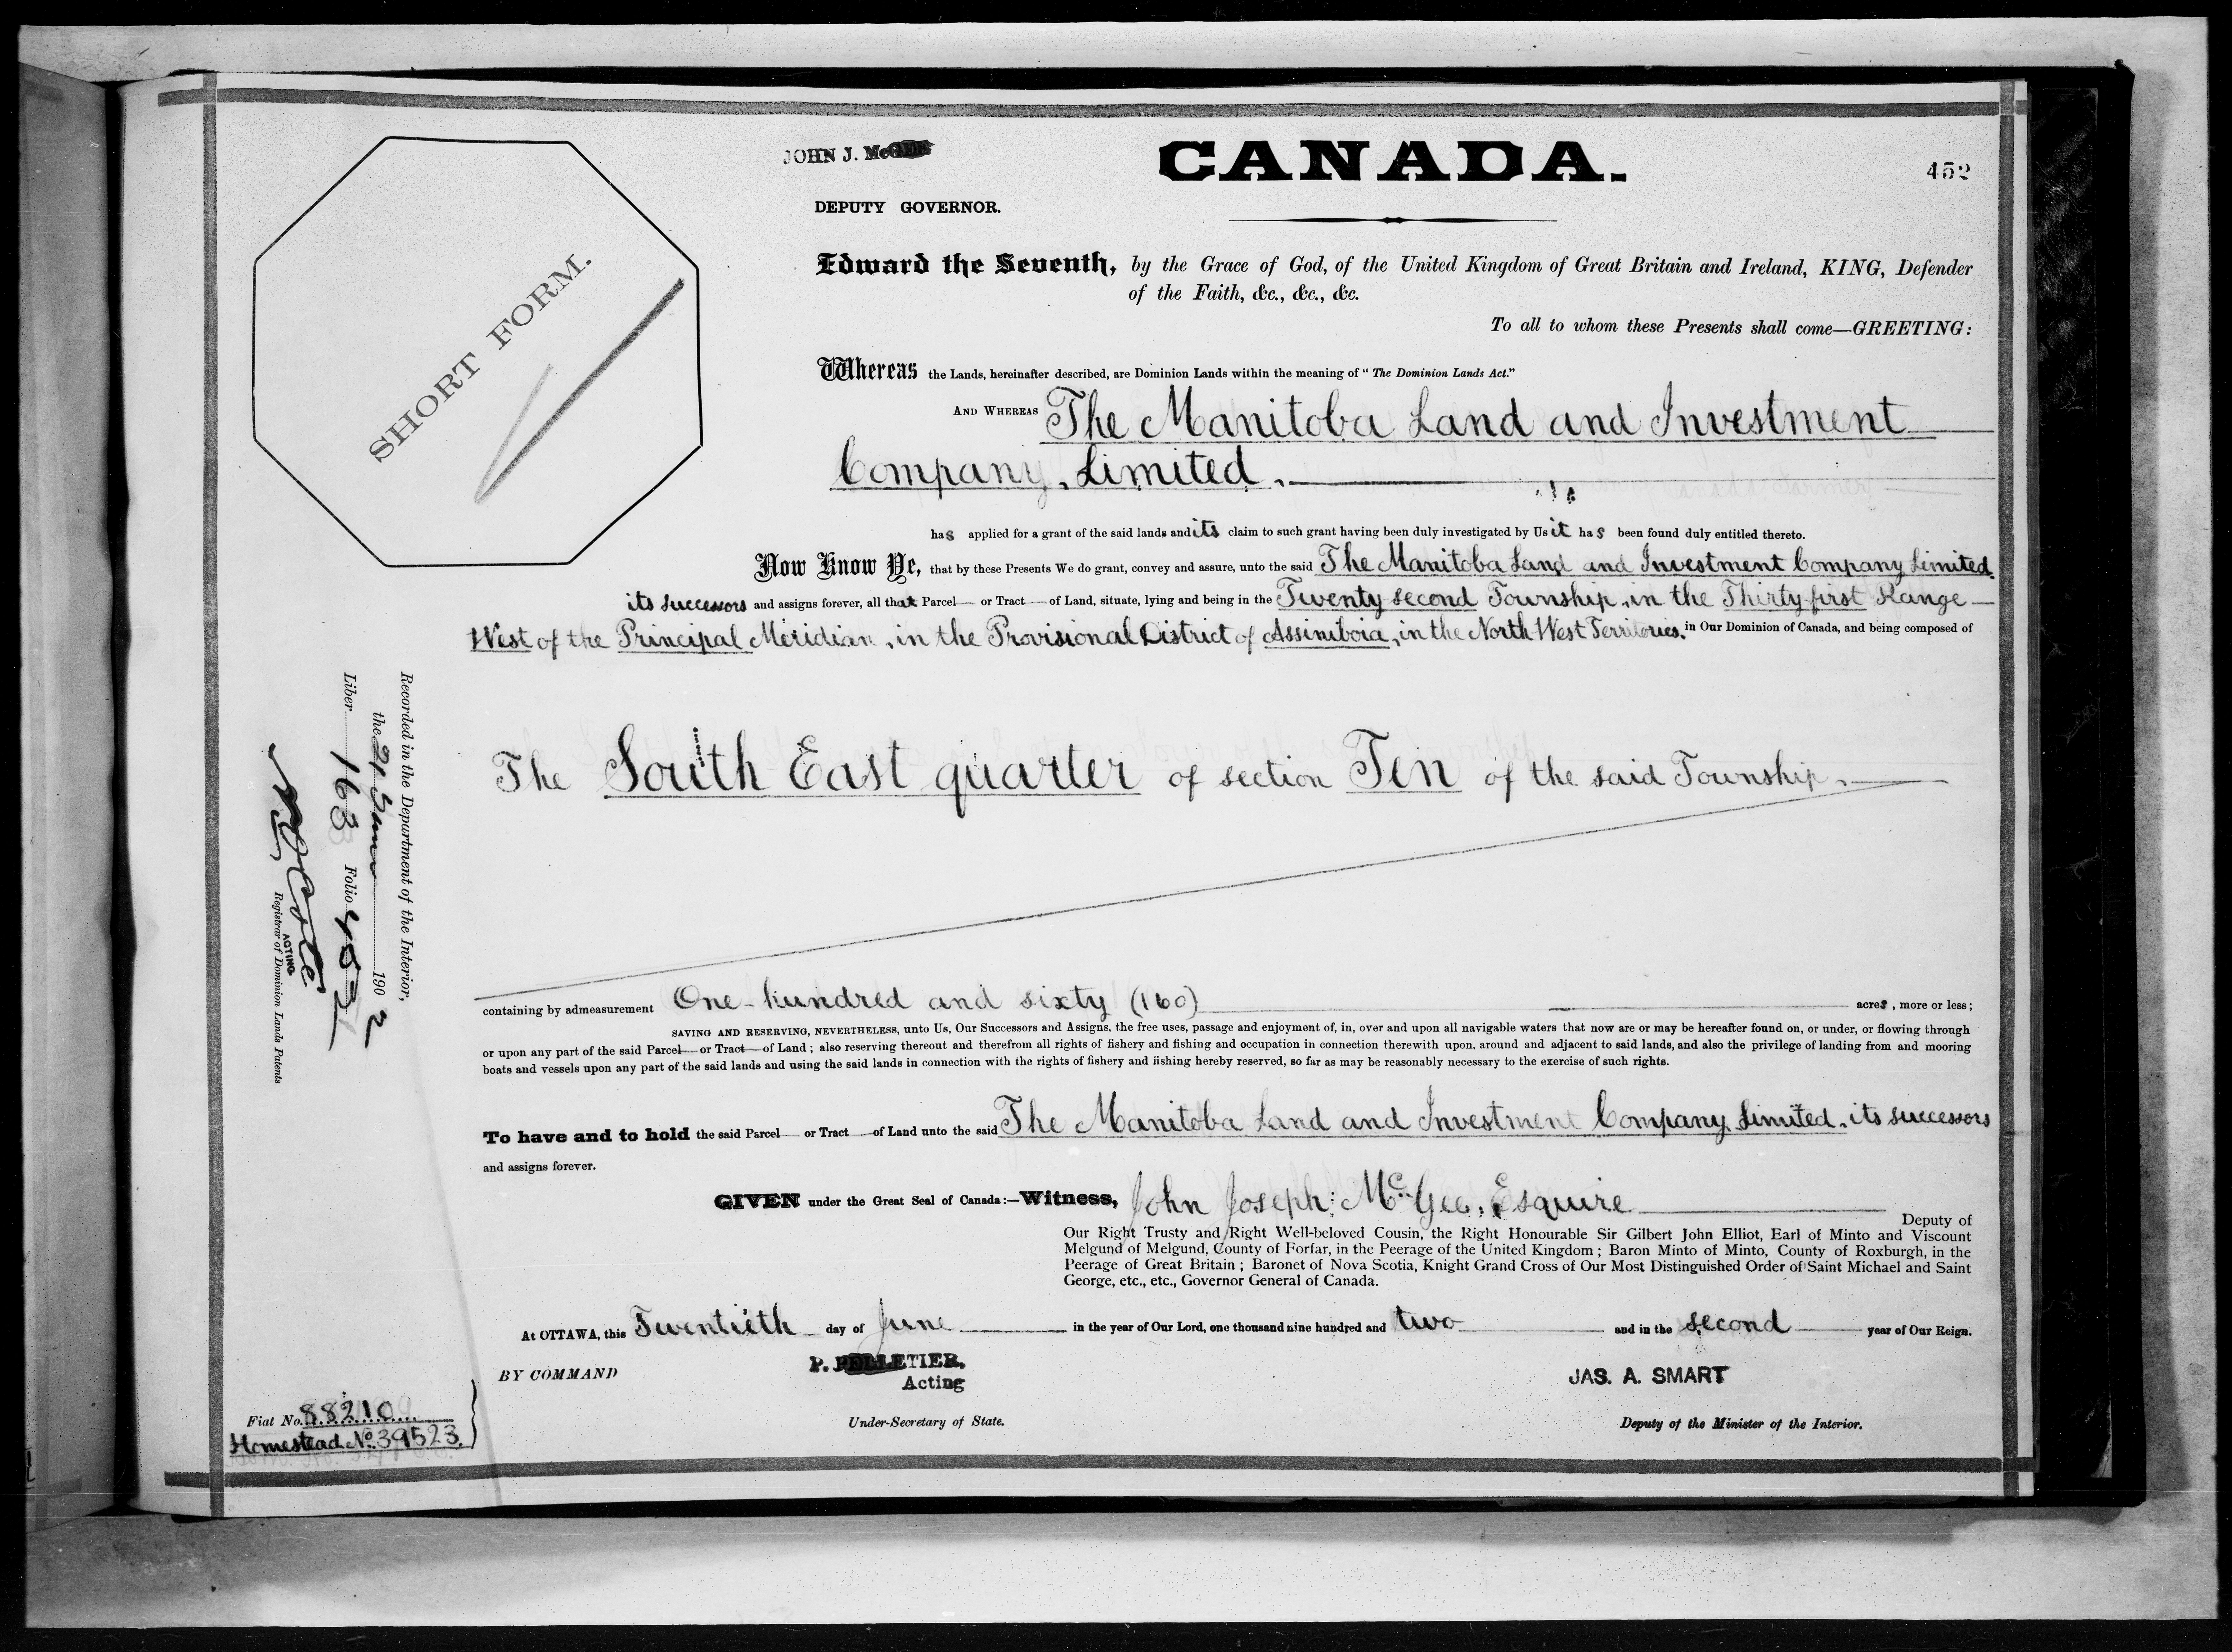 JOHN J. McGEE
CANADA.
452
DEPUTY GOVERNOR.
SHORT FORM.
Edward the Seventh, by the Grace of God, of the United Kingdom of Great Britain and Ireland, KING, Defender
of the Faith, &c., &c., &c.
To all to whom these Presents shall come—GREETING:
Whereas the Lands, hereinafter described, are Dominion Lands within the meaning of "The Dominion Lands Act."
AND WHEREAS The Manitoba Land and Investment
Company, Limited,
has applied for a grant of the said lands and its claim to such grant having been duly investigated by Us it has been found duly entitled thereto.
Now Know Ye, that by these Presents We do grant, convey and assure, unto the said The Manitoba Land and Investment Company Limited,
its successors and assigns forever, all that Parcel or Tract of Land, situate, lying and being in the Twenty second Township, in the Thirty first Range
West of the Principal Meridian, in the Provisional District of Assiniboia, in the North West Territories, in Our Dominion of Canada, and being composed of
The South East quarter of section Ten of the said Township.
containing by admeasurement One hundred and sixty (160) acres, more or less;
SAVING AND RESERVING, NEVERTHELESS, unto Us, Our Successors and Assigns, the free uses, passage and enjoyment of, in, over and upon all navigable waters that now are or may be hereafter found on, or under, or flowing through
or upon any part of the said Parcel or Tract of Land; also reserving thereout and therefrom all rights of fishery and fishing and occupation in connection therewith upon, around and adjacent to said lands, and also the privilege of landing from and mooring
boats and vessels upon any part of the said lands and using the said lands in connection with the rights of fishery and fishing hereby reserved, so far as may be reasonably necessary to the exercise of such rights.
To have and to hold the said Parcel or Tract of Land unto the said The Manitoba Land and Investment Company, Limited, its successors
and assigns forever.
GIVEN under the Great Seal of Canada:—Witness, John Joseph McGee, Esquire
Deputy of
Our Right Trusty and Right Well-beloved Cousin, the Right Honourable Sir Gilbert John Elliot, Earl of Minto and Viscount
Melgund of Melgund, County of Forfar, in the Peerage of the United Kingdom; Baron Minto of Minto, County of Roxburgh, in the
Peerage of Great Britain; Baronet of Nova Scotia, Knight Grand Cross of Our Most Distinguished Order of Saint Michael and Saint
George, etc., etc., Governor General of Canada.
At OTTAWA, this Twentieth day of June in the year of Our Lord, one thousand nine hundred and two and in the second year of Our Reign.
BY COMMAND
P. PELLETIER,
Acting
Under-Secretary of State.
JAS. A. SMART
Deputy of the Minister of the Interior.
Recorded in the Department of the Interior,
the 21 June 1902
Liber 163 Folio 452
ACTING
Registrar of Dominion Lands Patents
Fiat No. 88210
Homestead No. 39523.